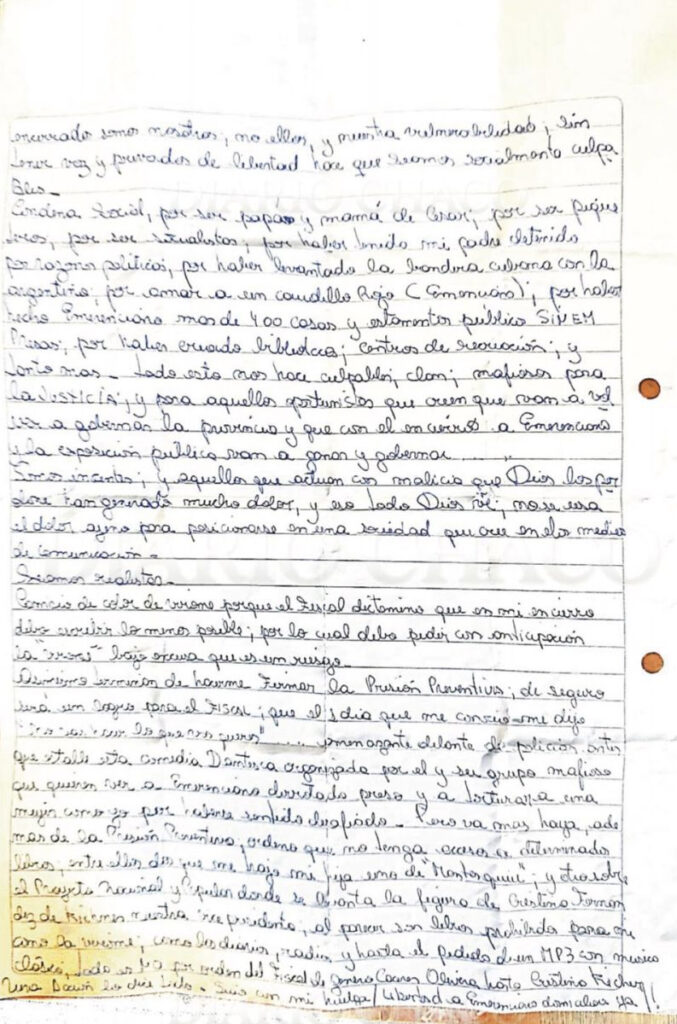 encerrado somos nosotros; no ellos, y nuestra vulnerabilidad; sin
tener voz y privados de libertad hace que seamos socialmente culpa
bles.-
Social, por ser papas y mamá de Cesar; por ser pique
teros, por ser socialistas; por haber tenido mi padre detenido
por razones politicas, por haber levantado la bandera cubana con la
argentina; por amar a un caudillo Rojo (Emerenciano); por haber
hecho Emerenciano mas de 400 casas y estamentos publico SIN EM
Presas; por haber creado bibliotecas; centros de recreación; y
tanto mas - todo esto nos hace culpables, clan; mafiosos para
la JUSTICIA; y para aquellos oportunistas que creen que van a vol
ver a gobernar la provincia y que con el encierro a Emerenciano
y la exposición publica van a ganar y gobernar......
Somos inocentes; y aquellos que actuan con malicia que Dios los per
done han generado mucho dolor, y eso todo Dios ve; no se usa
el dolor ajeno para posicionarse en una sociedad que cree en los medios
de comunicación.-
Seamos realistas.-
Cambio de color de birome porque el Fiscal dictamino que en mi encierro
debo escribir lo menos posible; por lo cual debo pedir con anticipación
la bajo excusa que es un riesgo.
Asimismo terminan de hacerme Firmar la Prisión Preventiva; de seguro
será un logro para el FISCAL; que el dia que me conocio me dijo
"no vas hacer lo que vos queres" ...... amenazante delante de policias antes
que estalle esta comedia Dantesca organizada por el y su grupo mafioso
que quieren ver a Emerenciano derrotado preso y a torturar a una
mujer como yo por haberse sentido desafiado - Pero va mas haya, ade
mas de la Prisión Preventiva; ordeno que no tenga acceso a determinados
libros; entre ellos dos que me trajo mi hija uno de y otro sobre
el Proyecto Nacional y Popular donde se levanta la figura de Cristina Fernan
dez de Kichner nuestra vice presidenta; al parecer son libros prohibidos para mi
como la birome; como los diarios, radios y hasta el pedido de un MP3 con musica
clásica, todo es NO por orden del Fiscal de Genero Caceres Olivera hasta Cristina Kichner
Una Dacion los dice Sigo con mi huelga / Libertad a Emerenciano